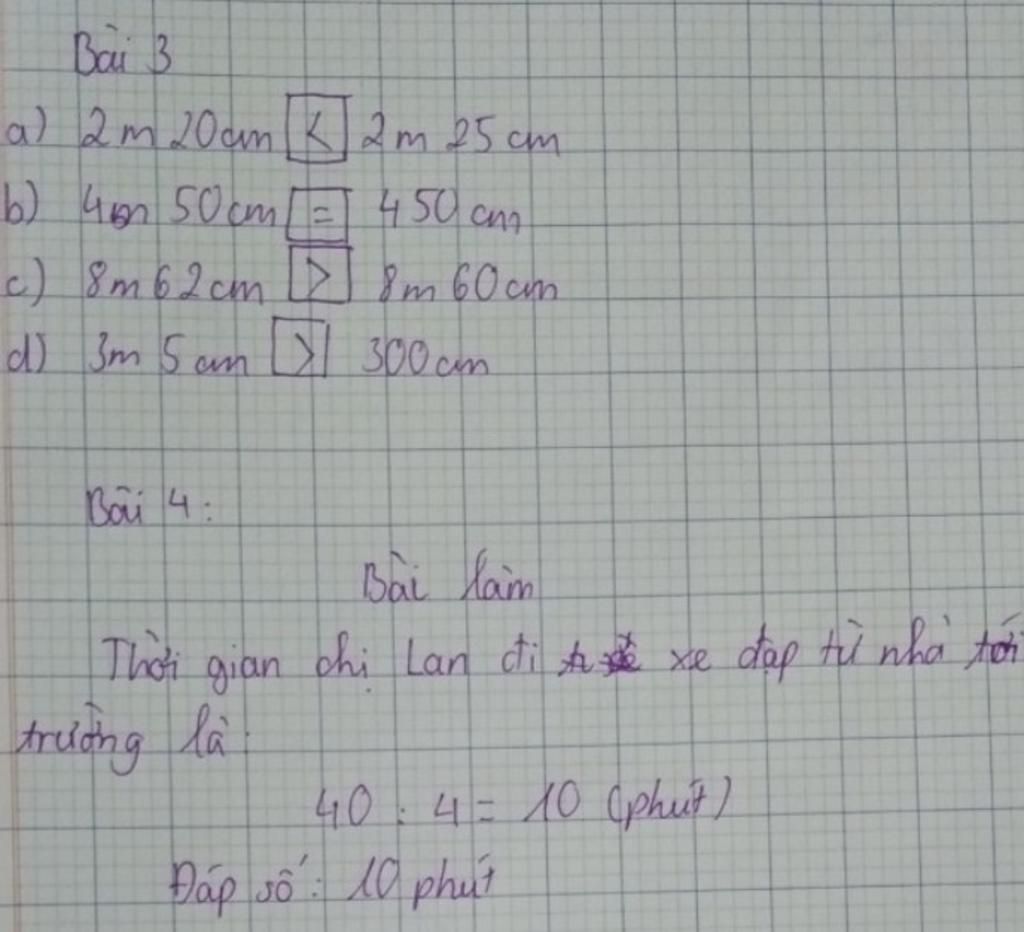 Bài 3
a) 2m 20cm < 2m 25cm
b) 4m 50cm = 450cm
c) 8m 62cm > 8m 60cm
d) 3m 5cm > 300cm
Bài 4:
Bài làm
Thời gian chị Lan đi xe đạp từ nhà tới
trường là:
40 : 4 = 10 (phút)
Đáp số: 10 phút